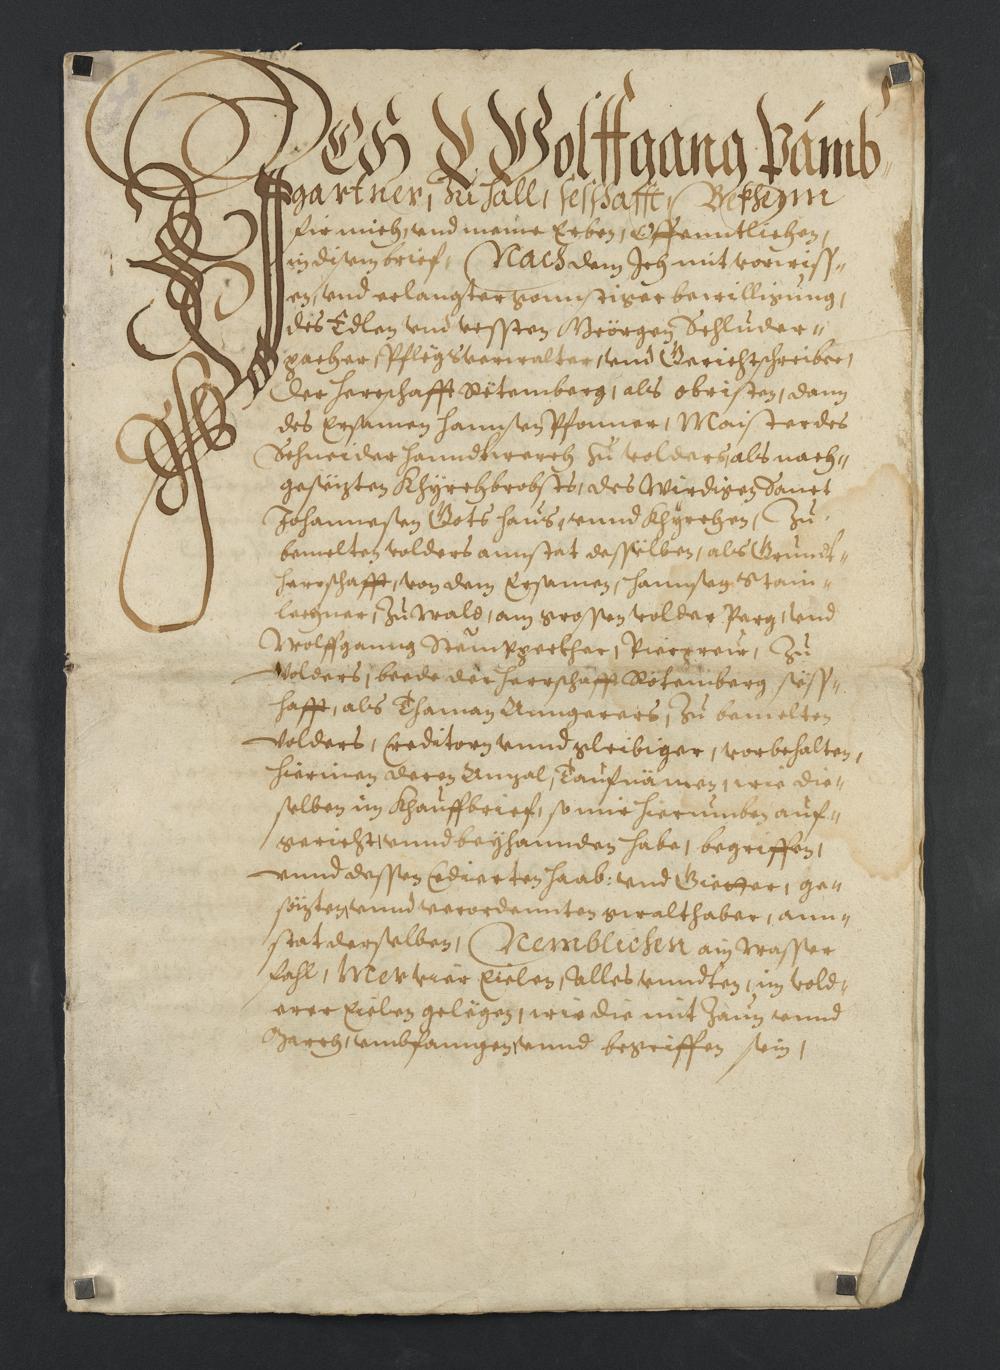 ICH Wolffganng Pämb-
gartner, zu Hall, seßhafft, Bekhenn
für mich, vnd meine Erben, Offenntlichen,
in disem brief, Nach dem Ich mit vorwiss-
en, vnd erlangter gonnstiger bewilligung,
des Edlen vnd vessten Geörgen Schluder-
pacher, Pflegsverwalter, vnd Gerichtschreiber,
der herrschafft Rötemberg, als obristen, dann
des Ersamen Hannsen Pfonner, Maister des
Schneider Hanndtwerch zu volders, als nach-
gesëtzten Khÿrchbrobsts, des Wirdigen Sanct
Johannesen Gots haus, vnnd Khÿrchen, Zu
bemelten volders anstat desselben, als Grundt-
herrschafft, von dem Ersamen, Hannsen Stain-
lechner, zu Wald, am grossen volder Perg, vnd
Wolffganng, Pierpreu, Zu
Volders, beede der herrschafft Rötemberg sëss-
hafft, als Thaman Anngerers, zu bemelten
Volders, Creditorn vnnd gleibiger, vorbehalten,
hierinen deren Anzal, Taufnämen, wie die-
selben im Khauffbrief, so mir hierumben auf-
gericht, vnnd beÿhannden habe, begriffen,
vnnd dessen Cedierten haab: vnd Gietter, ge-
sötzten, vnnd verordennten gwalthaber, ann-
stat derselben, Nemblichen ain Wasser
fahl, Mer vier, alles vnndten, im vold-
erer gelëgen, wie die mit Zaun vnnd
March, vmbfanngen, vnnd begriffen sein,